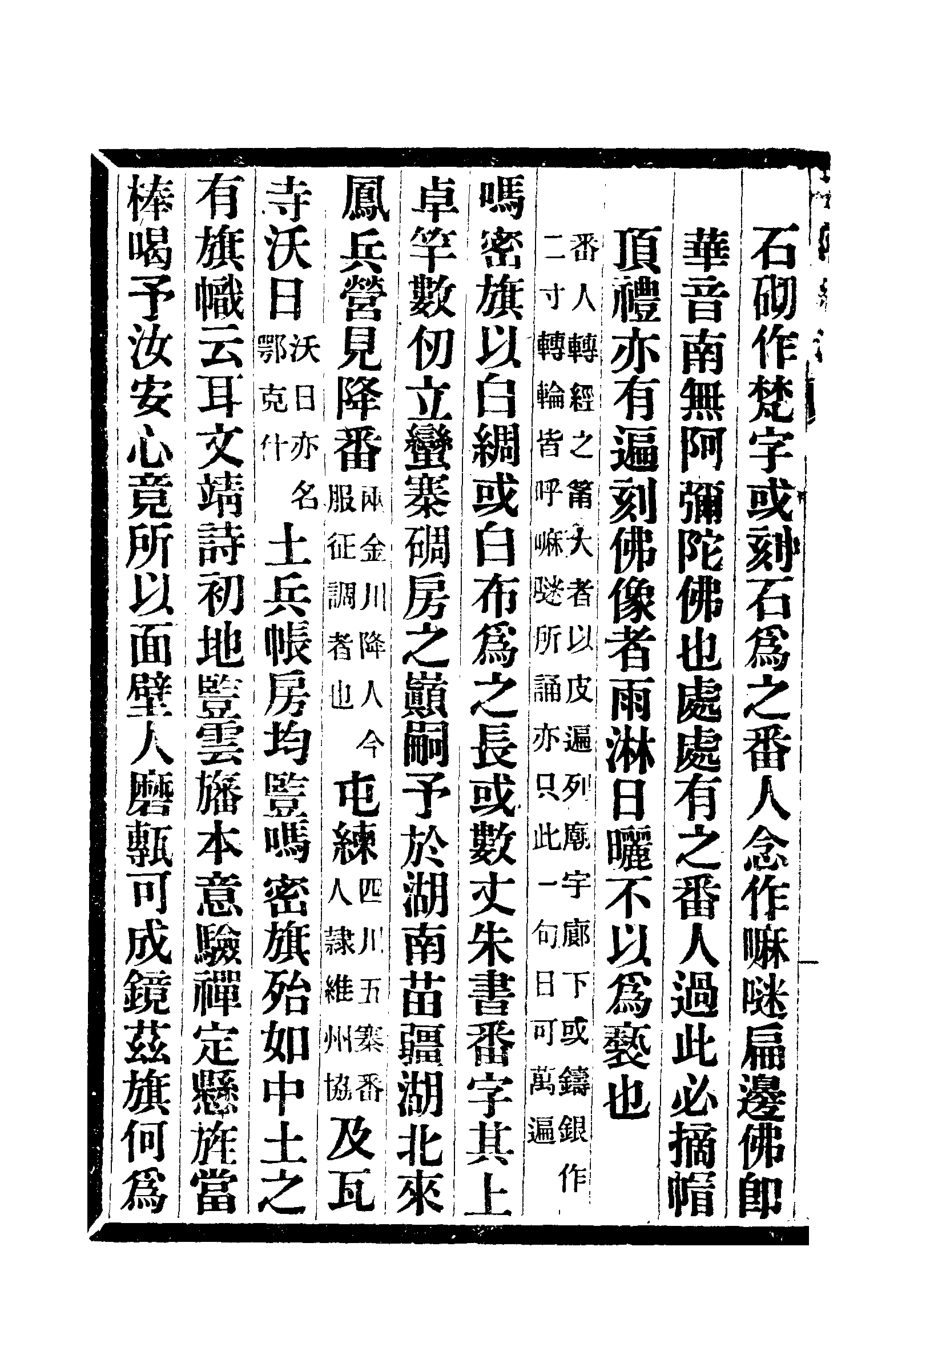 石砌作梵字或刻石爲之番人念作嘛㖷扁邊佛卽
華音南無阿彌陀佛也處處有之番人過此必摘帽
頂禮亦有遍刻佛像者雨淋日曬不以爲褻也
番人轉經之筩大者以皮遍列廟宇廊下或鑄銀作
二寸轉輪皆呼嘛㘄所誦亦只此一句日可萬遍
嗎密旗以白綢或白布爲之長或數丈朱書番字其上
卓竿數仞立蠻寨碉房之巔嗣予於湖南苗疆湖北來
鳳兵營見降番兩金川降人今服征調者也屯練四川五寨番人隷維州協及瓦
寺沃日沃日亦名鄂克什土兵帳房均豎嗎密旗殆如中土之
有旗幟云耳文靖詩初地豎雲旛本意驗禪定懸旌當
棒喝予汝安心竟所以面壁人磨甎可成鏡茲旗何爲